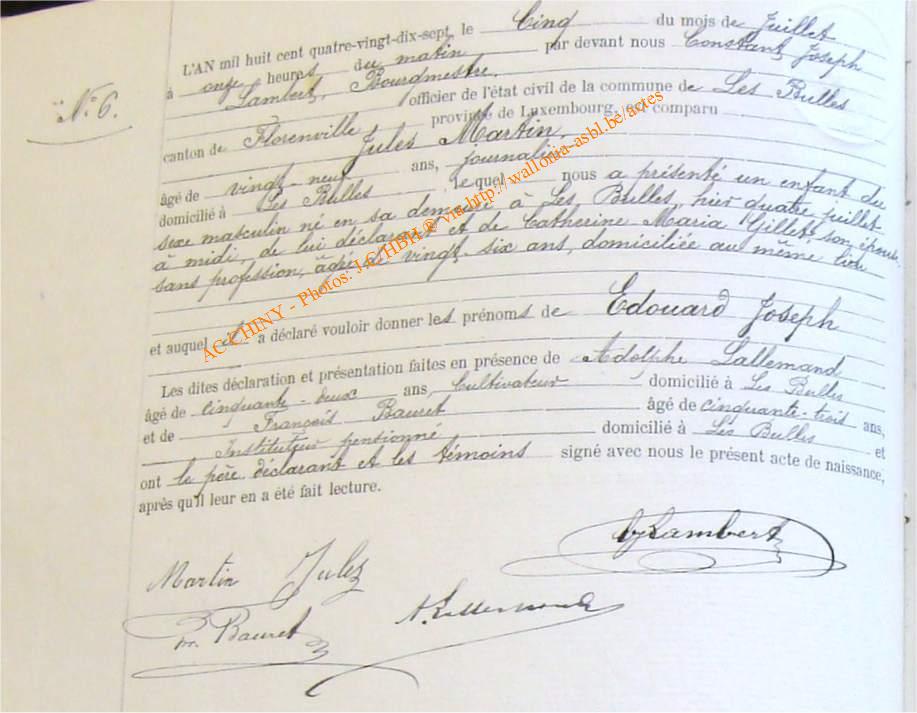 N.º 6.
L'AN mil huit cent quatre-vingt-dix-sept, le Cinq du mois de Juillet
à onze heures du matin par devant nous Constant Joseph
Lambert, Bourgmestre. officier de l'état civil de la commune de Les Bulles
canton de Florenville province de Luxembourg, est comparu
Jules Martin,
âgé de vingt-neuf ans, journalier
domicilié à Les Bulles lequel nous a présenté un enfant du
sexe masculin né en sa demeure à Les Bulles, hier quatre juillet
à midi, de lui déclarant et de Catherine Maria Gillet son épouse,
sans profession, âgée de vingt-six ans, domiciliée au même lieu
et auquel il a déclaré vouloir donner les prénoms de Edouard Joseph
Les dites déclaration et présentation faites en présence de Adolphe Lallemand
âgé de cinquante-deux ans, Cultivateur domicilié à Les Bulles
et de François Bauret âgé de cinquante-trois ans,
Instituteur pensionné domicilié à Les Bulles et
ont le père déclarant et les témoins signé avec nous le présent acte de naissance,
après qu'il leur en a été fait lecture.
CjLambert
Martin Jules
Bauret
AC CHINY - Photos: J.C HBH @ via http://wallonia-asbl.be/actes